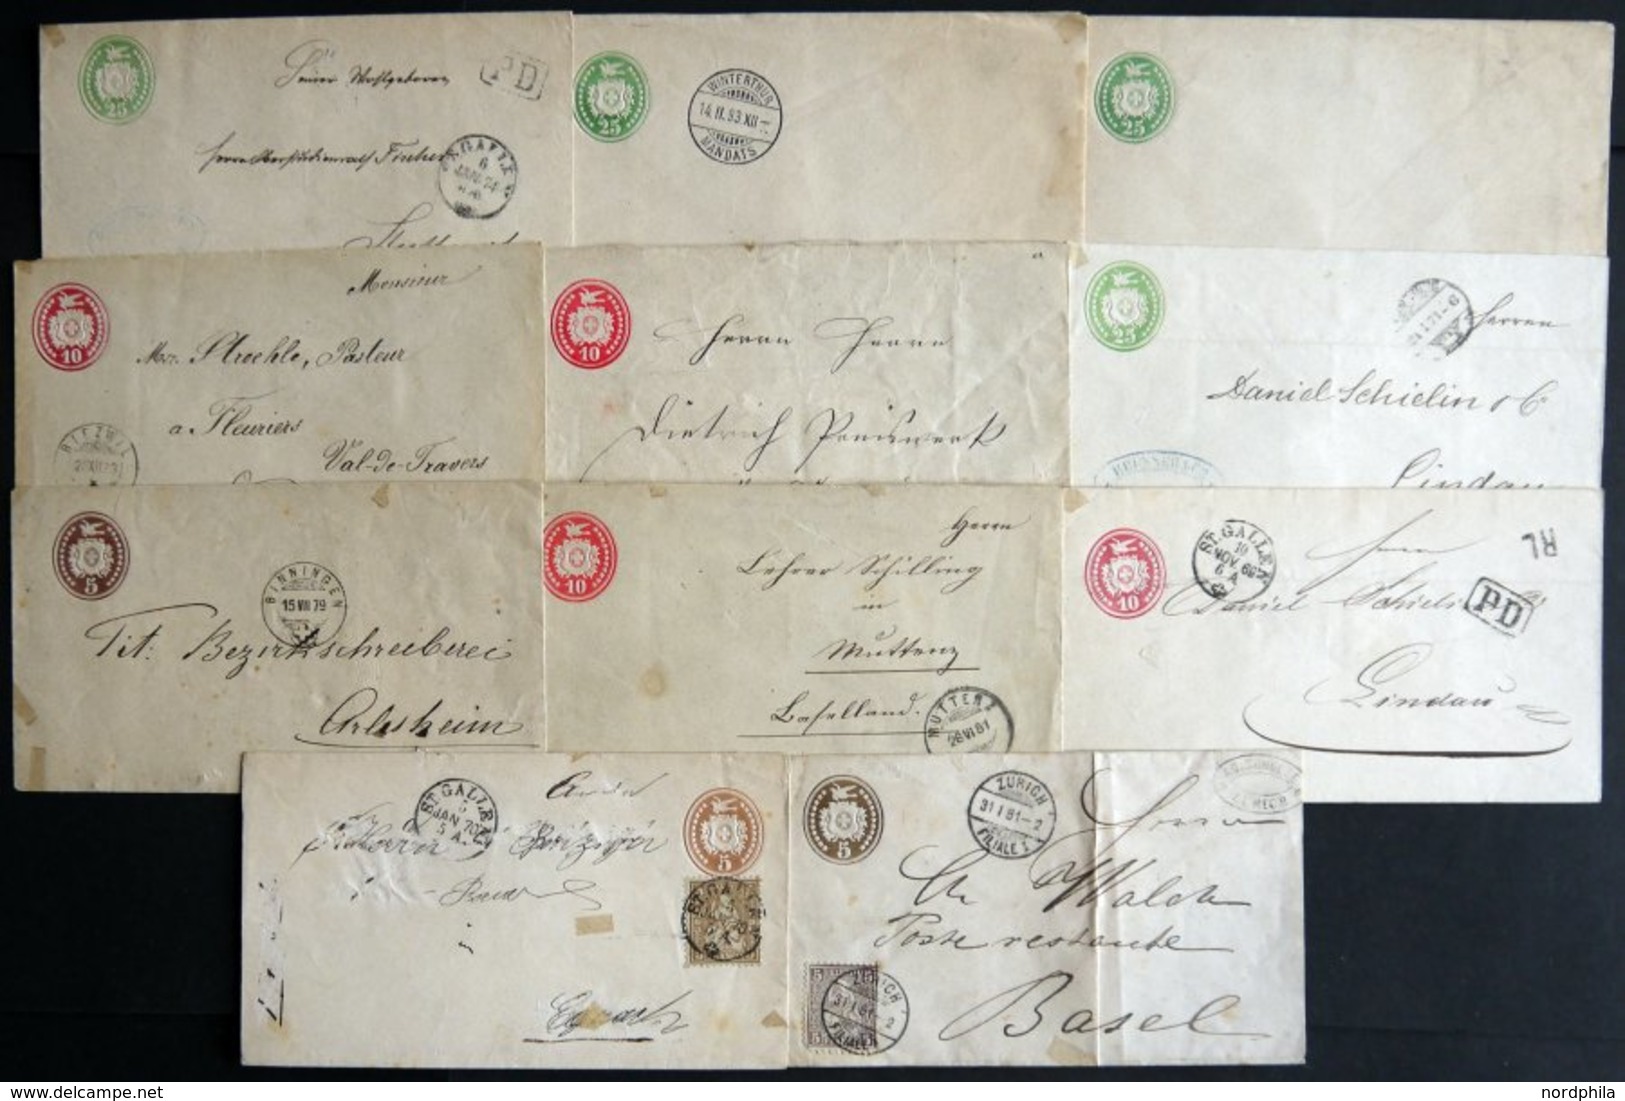 25
Seiner Wohlgeboren
PD
Herrn
Fischer
ST. GALLEN
6
JAN. 74
25
WINTERTHUR
14.II.93.XII
MANDATS
25
10
Monsieur
Mr. Stroehle, Pasteur
a Fleuriers
Val-de-Travers
10
Herrn Herrn
Dietrich Preiswerk
25
Herren
Daniel Schielin & Co
Lindau
5
BINNINGEN
15 VIII 79
Tit: Bezirksschreiberei
Arlesheim
10
Herrn
Lehrer Schilling
in
Muttenz
Baselland.
MUTTENZ
26 VI 81
10
ST. GALLEN
10
NOV. 69
6 A
RL
Herrn
Daniel Schielin
PD
Lindau
ST. GALLEN
5
JAN 70
5 A
5
in
ST. GALLEN
5
ZÜRICH
31 I 81-2
FILIALE I
Herrn
Ch Walch
Poste restante
Basel
5
5
5
5
ZÜRICH
31 I 81-2
FILIALE I
www.delcampe.net
nordphila.com